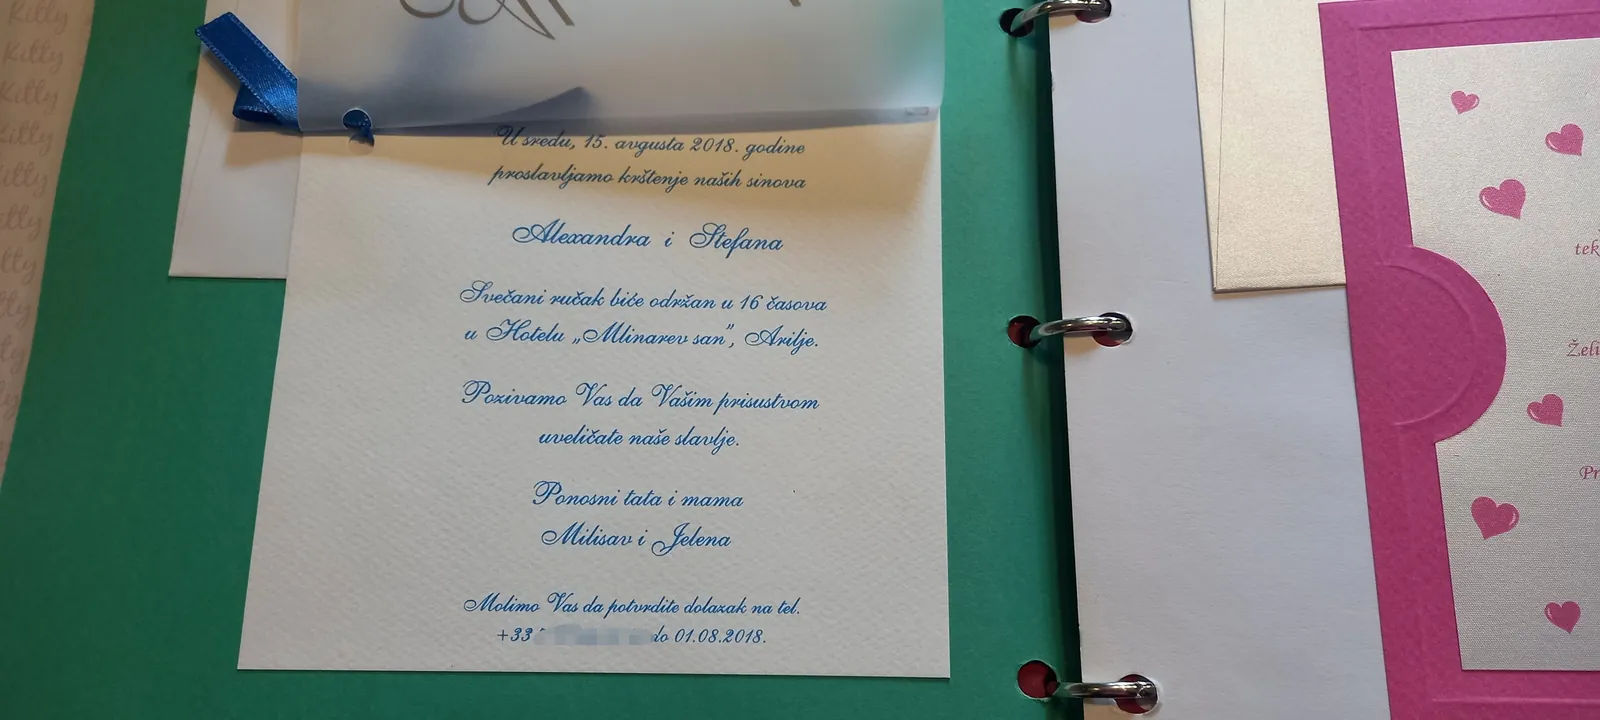 Kitty
Kitty
Kitty
Kitty
Kitty
Kitty
U sredu, 15. avgusta 2018. godine
proslavljamo krštenje naših sinova
Alexandra i Stefana
Svečani ručak biće održan u 16 časova
u Hotelu „Mlinarev san”, Arilje.
Pozivamo Vas da Vašim prisustvom
uveličate naše slavlje.
Ponosni tata i mama
Milisav i Jelena
Molimo Vas da potvrdite dolazak na tel.
+33 do 01.08.2018.